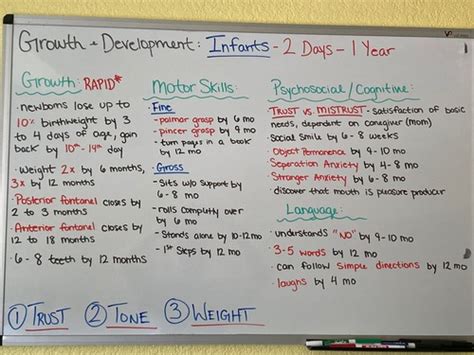 Growth + Development: Infants - 2 Days - 1 Year
Growth: RAPID*
· newborns lose up to
10% birthweight by 3
to 4 days of age, gain
back by 10th - 14th day
· Weight 2x by 6 months,
3x by 12 months
· Posterior fontanel closes by
2 to 3 months
· Anterior fontanel closes by
12 to 18 months
· 6 - 8 teeth by 12 months
Motor Skills:
· Fine
- palmar grasp by 6 mo
- pincer grasp by 9 mo
- turn pages in a book
by 12 mo
· Gross
- Sits w/o support by
6 - 8 mo
- rolls completly over
by 6 mo
- Stands alone by 10-12mo
- 1st Steps by 12 mo
Psychosocial/Cognitive:
· TRUST vs. MISTRUST - Satisfaction of basic
needs, dependent on caregiver (mom)
· Social Smile by 6 - 8 weeks
· Object Permanence by 9 - 10 mo
· Seperation Anxiety by 4 - 8 mo
· Stranger Anxiety by 6 - 8 mo
· discover that mouth is pleasure producer
Language:
· understands "NO" by 9 - 10 mo
· 3-5 words by 12 mo
· can follow simple directions by 12 mo
· laughs by 4 mo
① TRUST ② TONE ③ WEIGHT